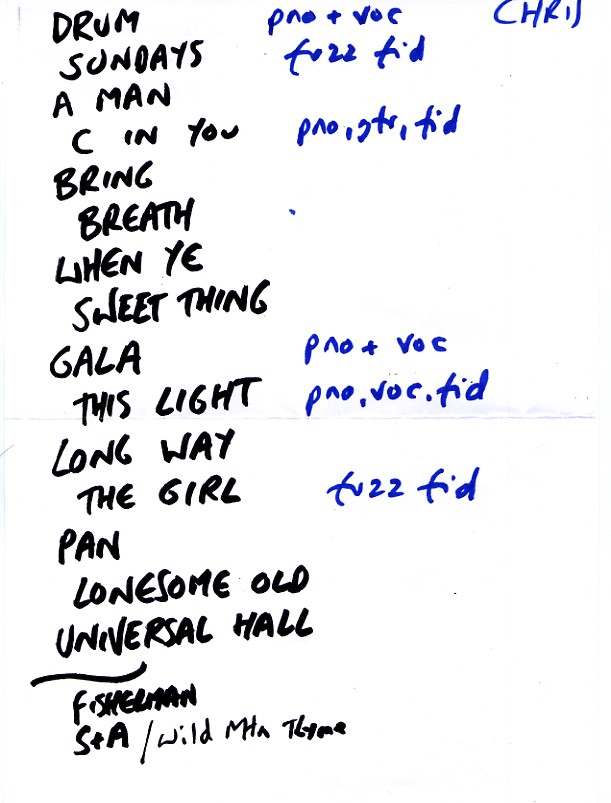 DRUM pno + voc CHRIS
SUNDAYS fuzz fid
A MAN
C IN YOU pno, gtr, fid
BRING
BREATH
WHEN YE
SWEET THING
GALA pno + voc
THIS LIGHT pno, voc, fid
LONG WAY
THE GIRL fuzz fid
PAN
LONESOME OLD
UNIVERSAL HALL
FISHERMAN
S+A / Wild Mtn Thyme